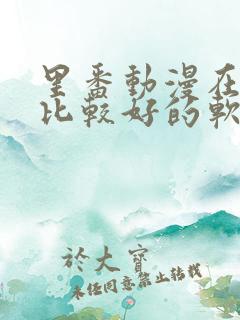 里番動漫在
比較好的軟
於大寶
未經同意禁止轉載